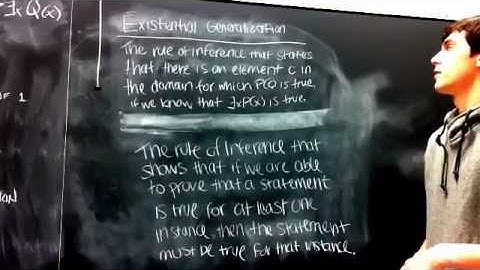 ∃x Q(x)
Existential Generalization
The rule of inference that states
that there is an element c in
the domain for which P(c) is true,
if we know that ∃xP(x) is true.
The rule of Inference that
shows that if we are able
to prove that a statement
is true for at least one
instance then the statement
must be true for that instance.